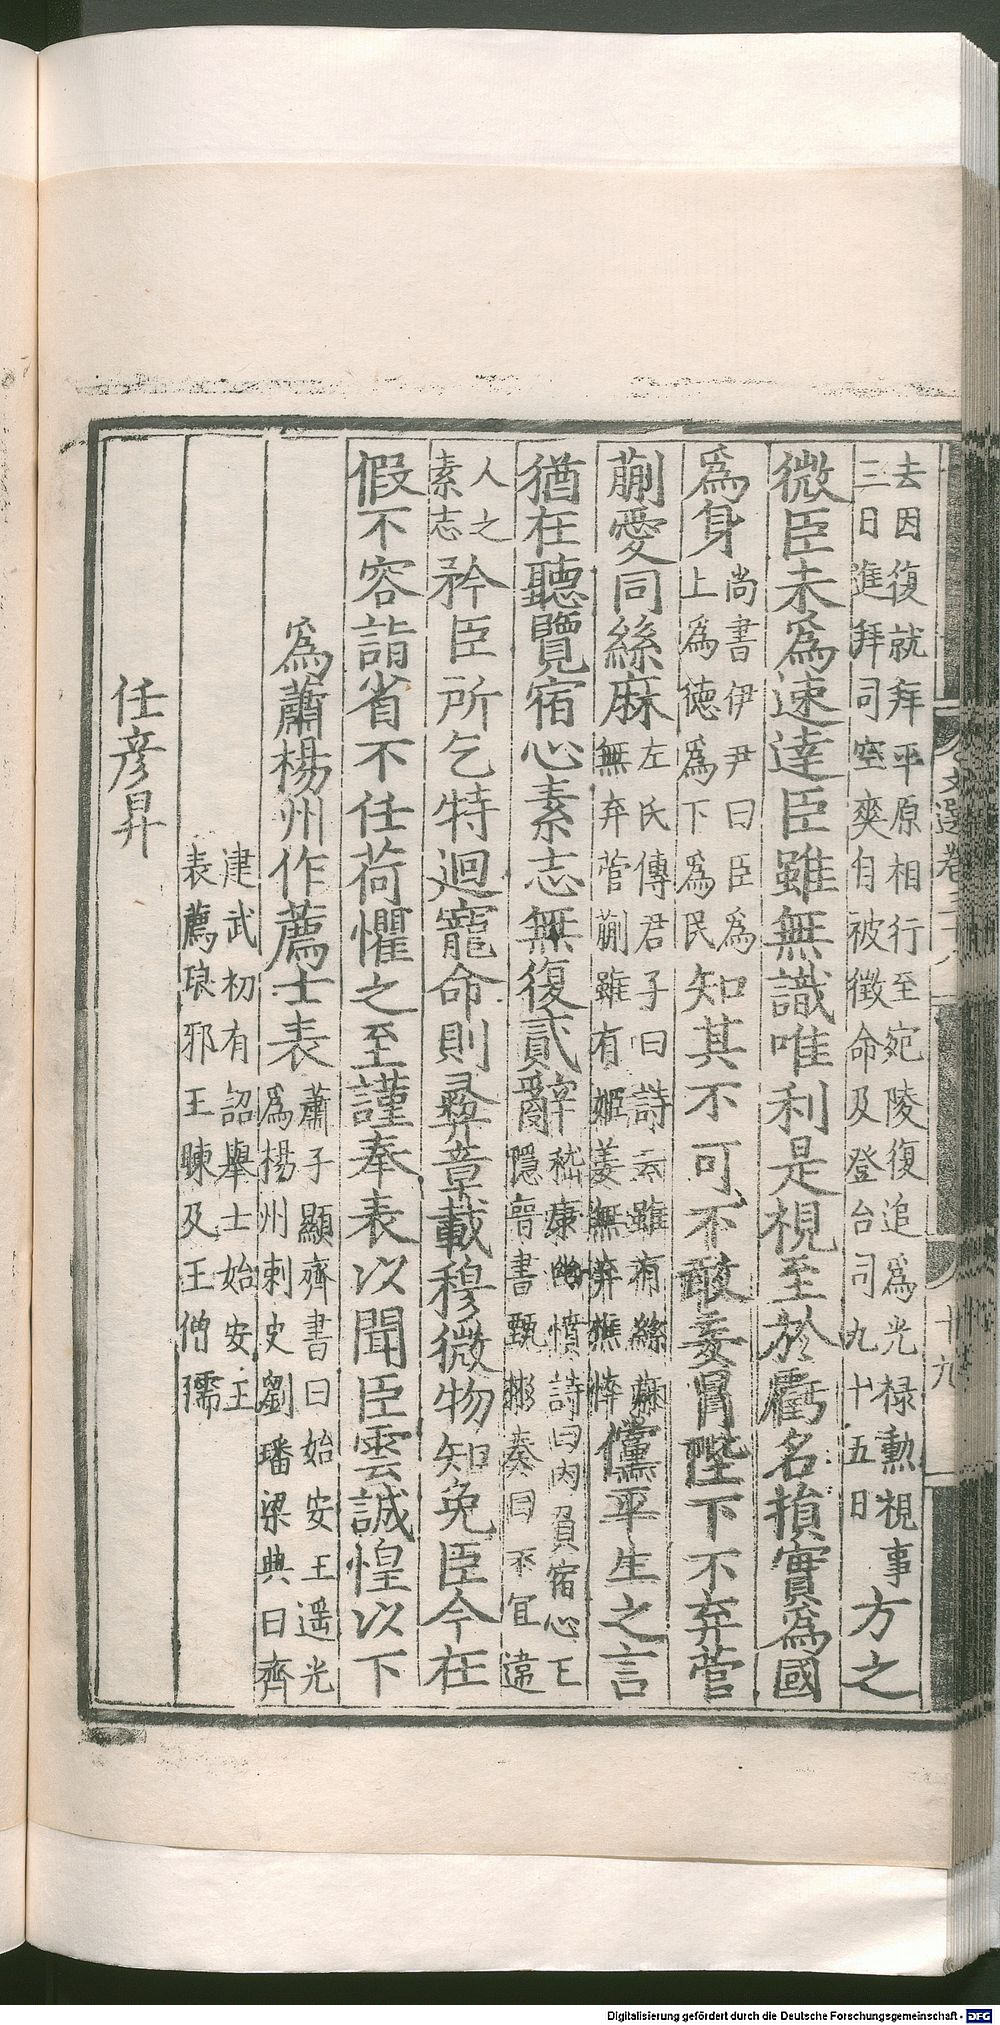 文選卷三十八
十九
去因復就拜平原相行至宛陵復追爲光禄勳視事
三日進拜司空爽自被徵命及登台司九十五日
方之
微臣未爲速達臣雖無識唯利是視至於虧名損實爲國
爲身
尚書伊尹曰臣爲
上爲德爲下爲民
知其不可不敢妄冒陛下不弃菅
蒯愛同絲麻
左氏傳君子曰詩云雖有絲麻
無弃菅蒯雖有姬姜無弃蕉悴
儻平生之言
猶在聽覽宿心素志無復貳辭
嵇康幽憤詩曰内負宿心王
隱晉書甄彬奏曰不宜違
人之
素志
矜臣所乞特迴寵命則彝章載穆微物知免臣今在
假不容詣省不任荷懼之至謹奉表以聞臣雲誠惶以下
爲蕭楊州作薦士表
蕭子顯齊書曰始安王遥光
爲楊州刺史劉璠梁典曰齊
建武初有詔舉士始安王
表薦琅邪王暕及王僧孺
任彦昇
Digitalisierung gefördert durch die Deutsche Forschungsgemeinschaft - DFG